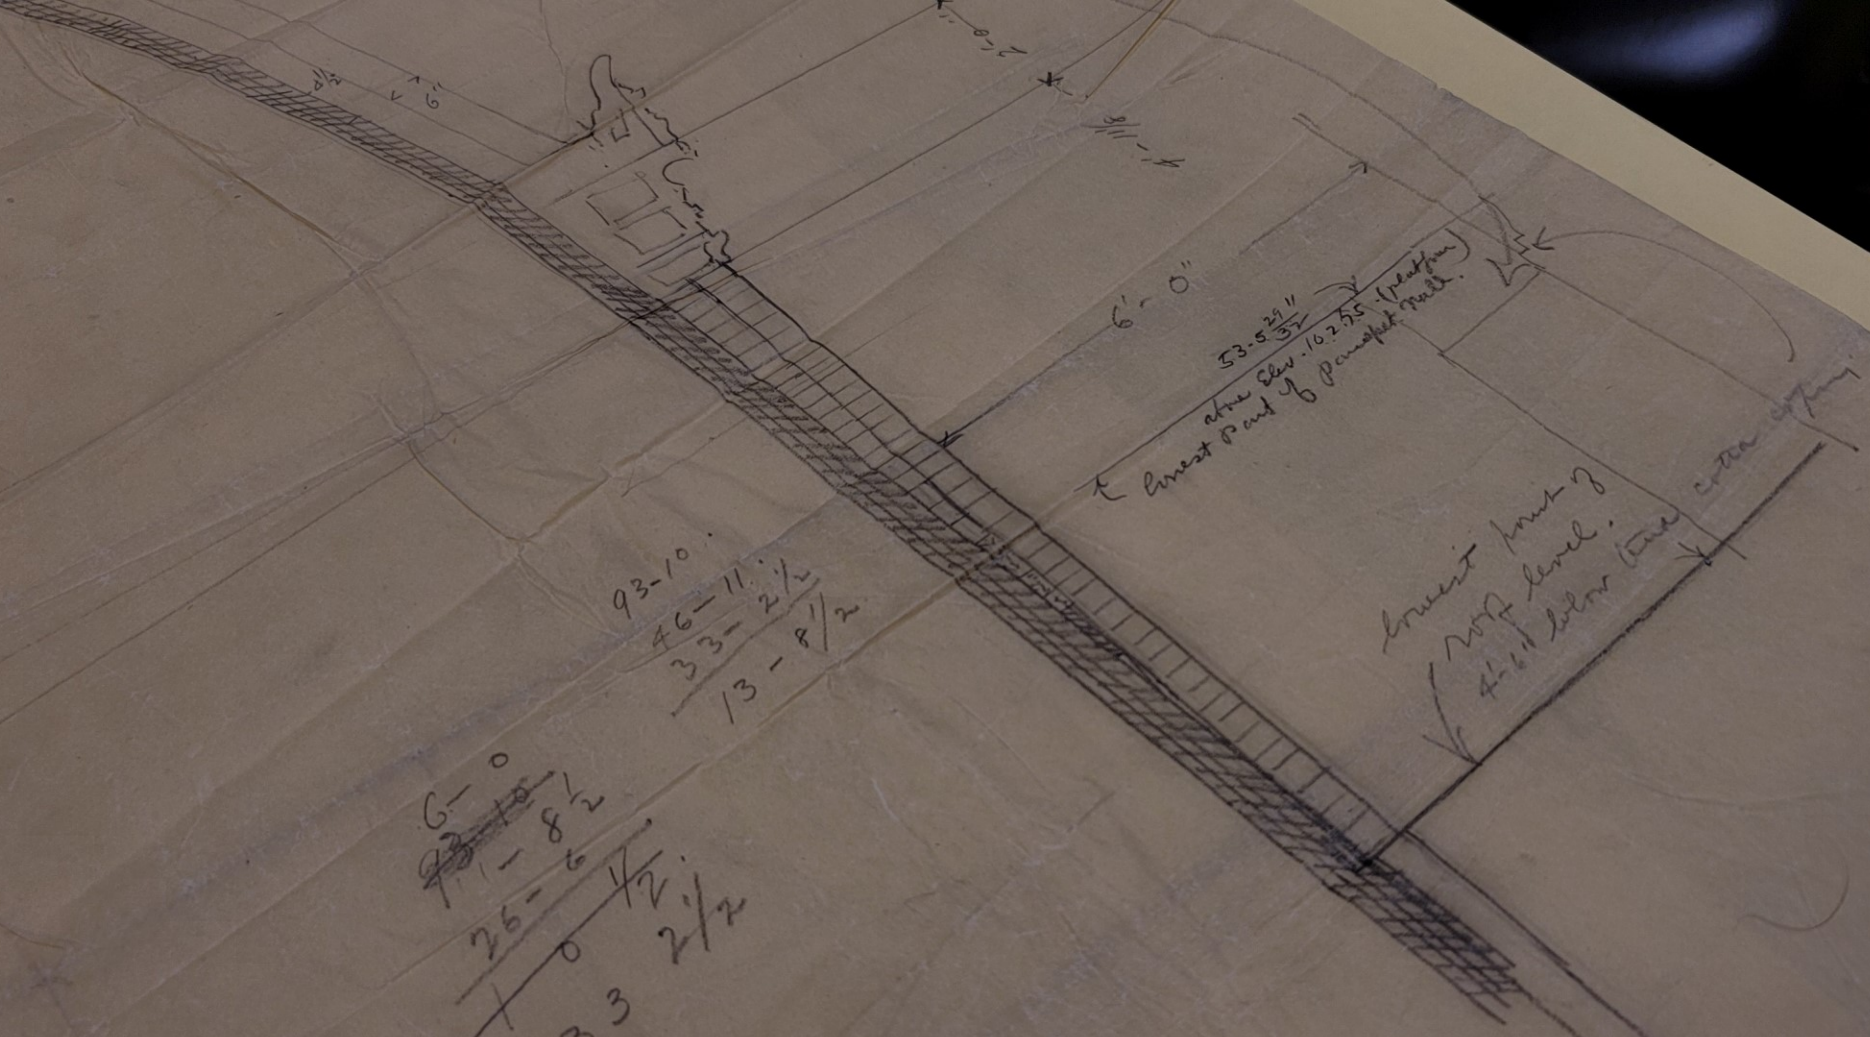 4½
6"
2'-0"
4'-11/8
6'-0"
53-5 29/32"
above Elev. 102.75. (platform)
lowest part of parapet wall.
lowest point of
roof level.
4'-6" below (terra cotta coping
93-10
46-11
33-2½
13-8½
6-0
93-10
11-8½
26-6
1 0 ½
33 2½